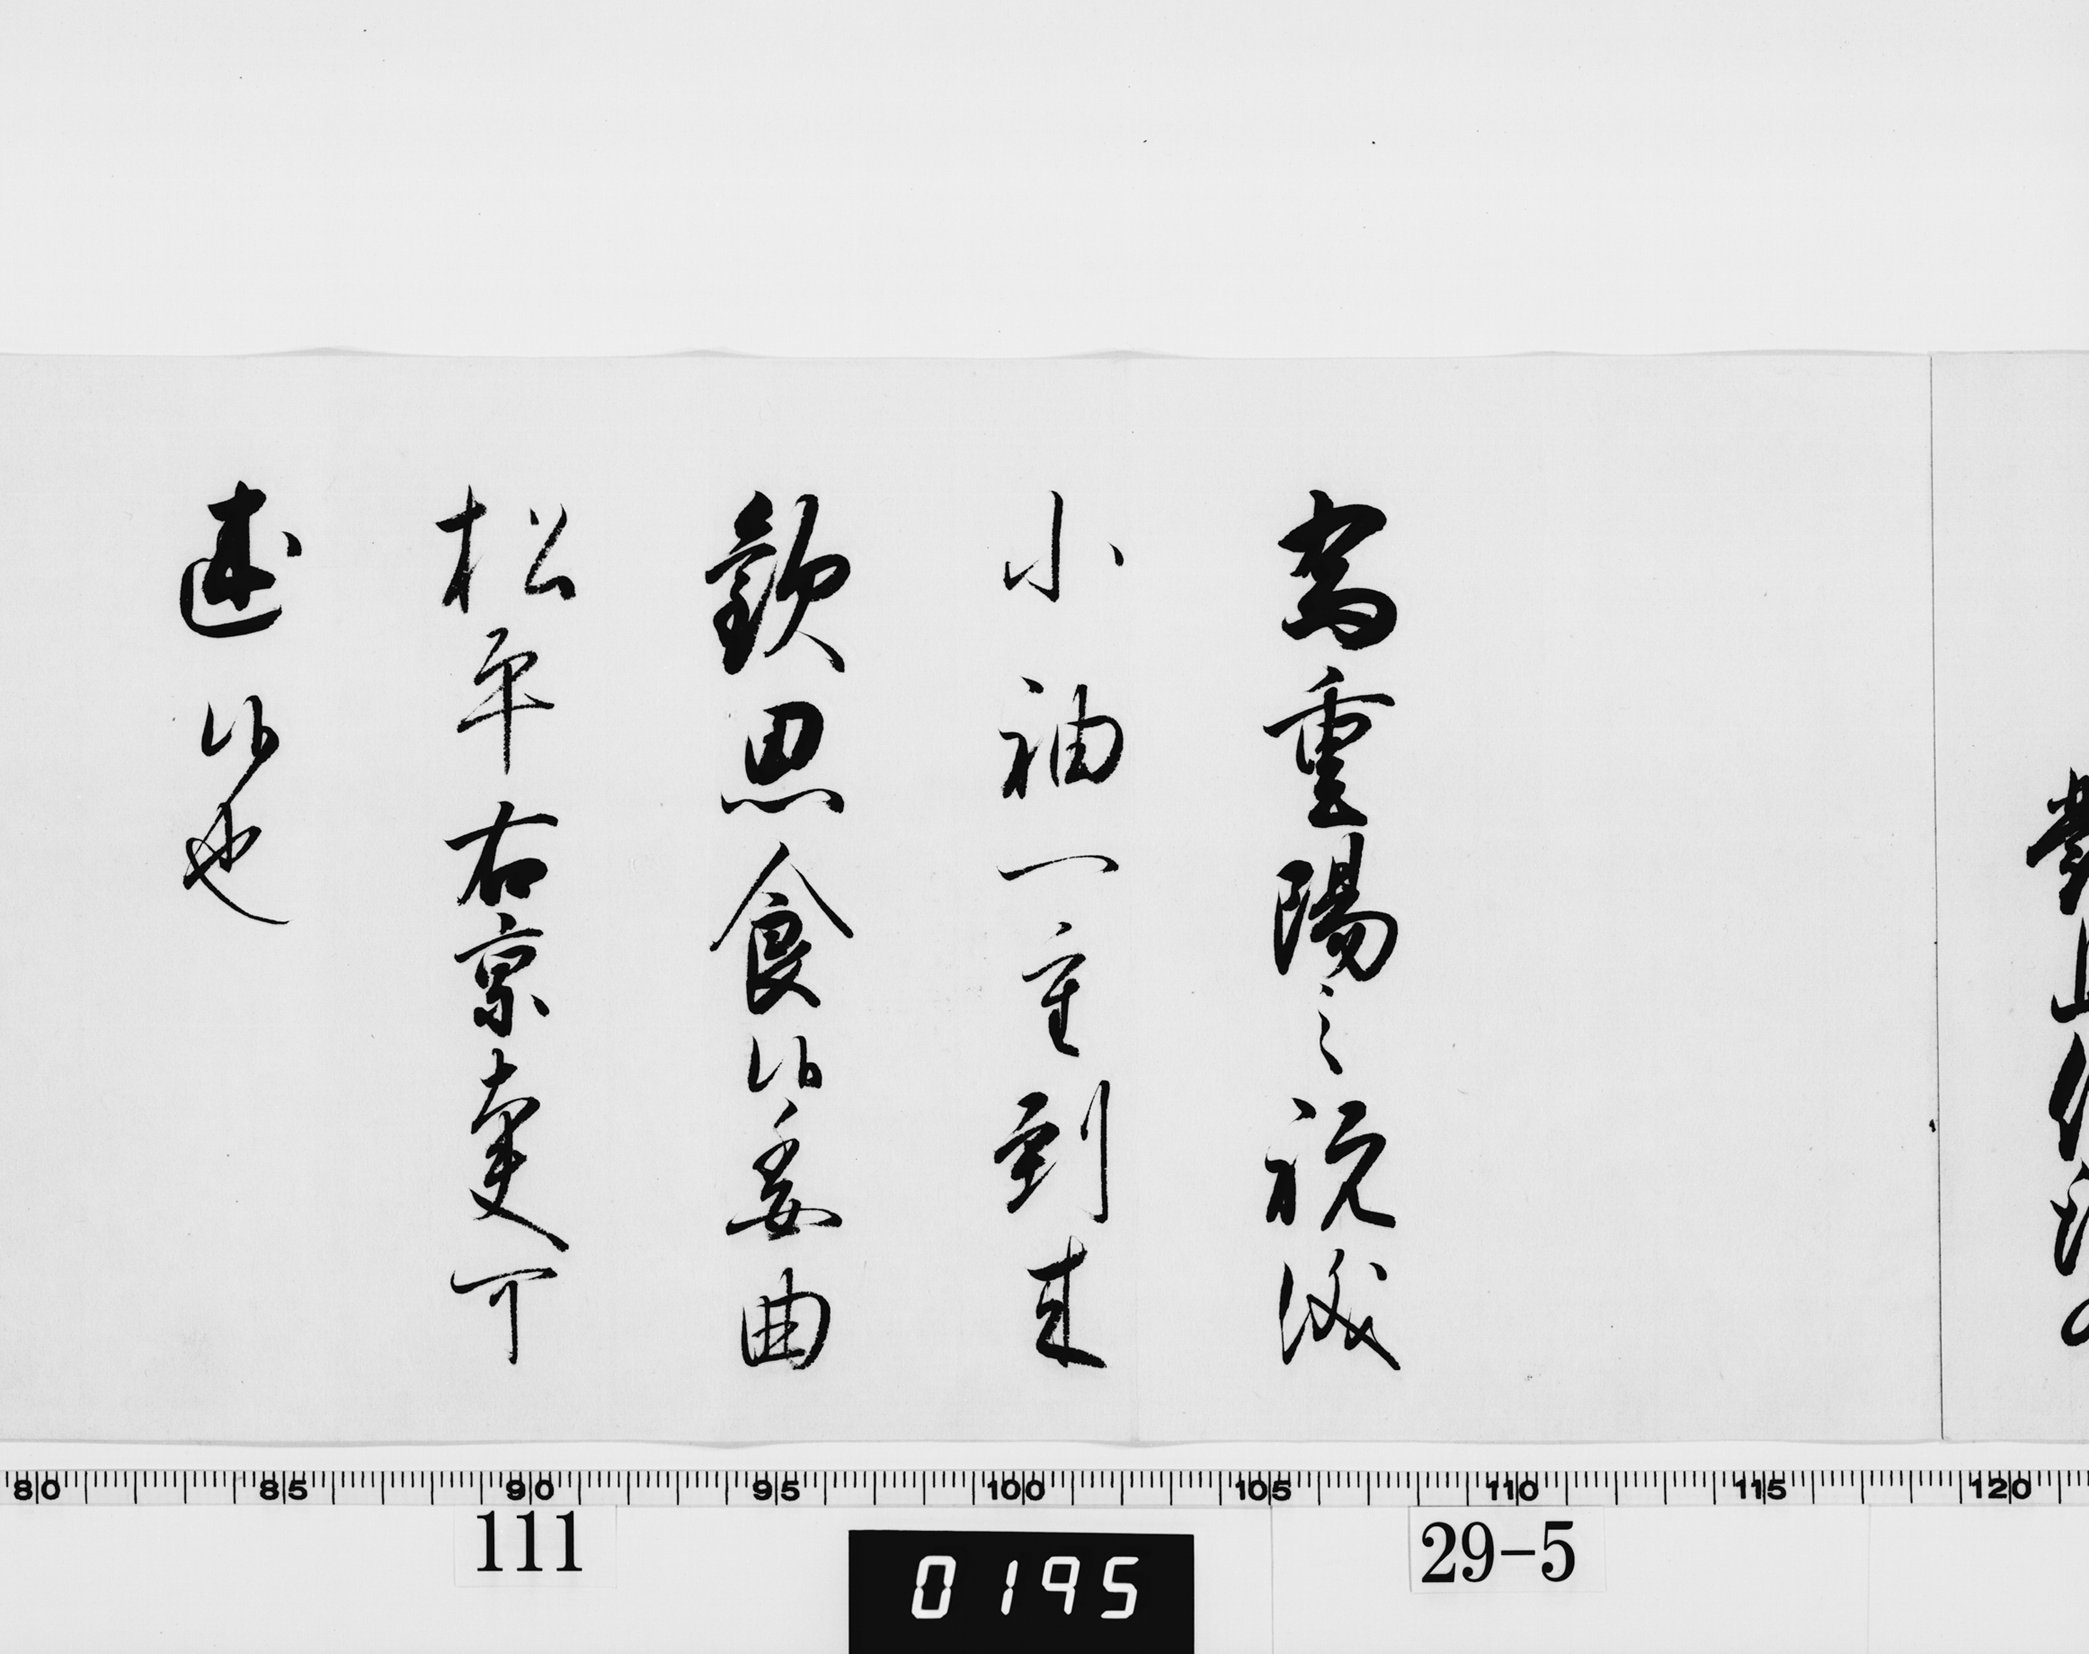 為重陽之祝儀
小袖一重到来
歓思食候委曲
松平右京大夫可
述候也
80 85 90 95 100 105 110 115 120
111
0195
29-5